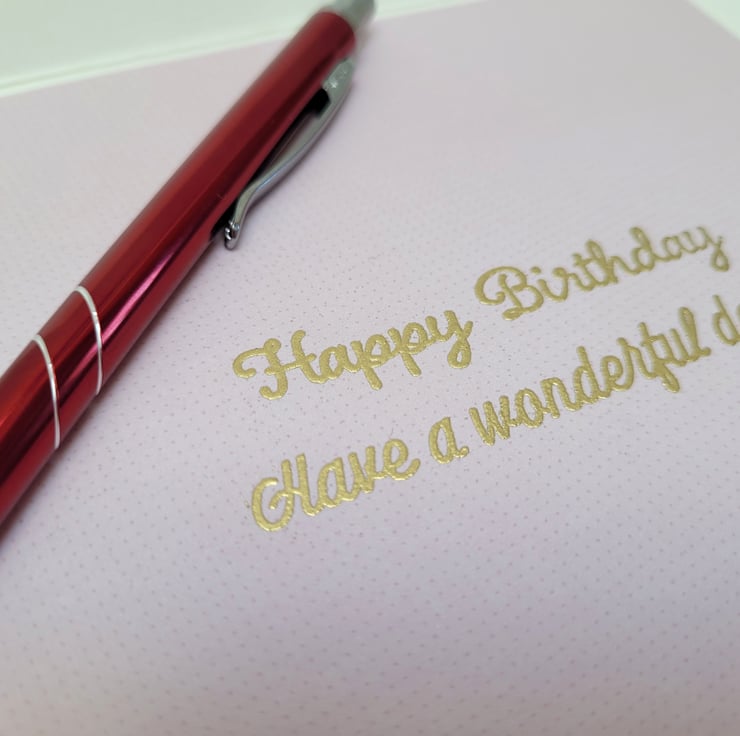 Happy Birthday
Have a wonderful